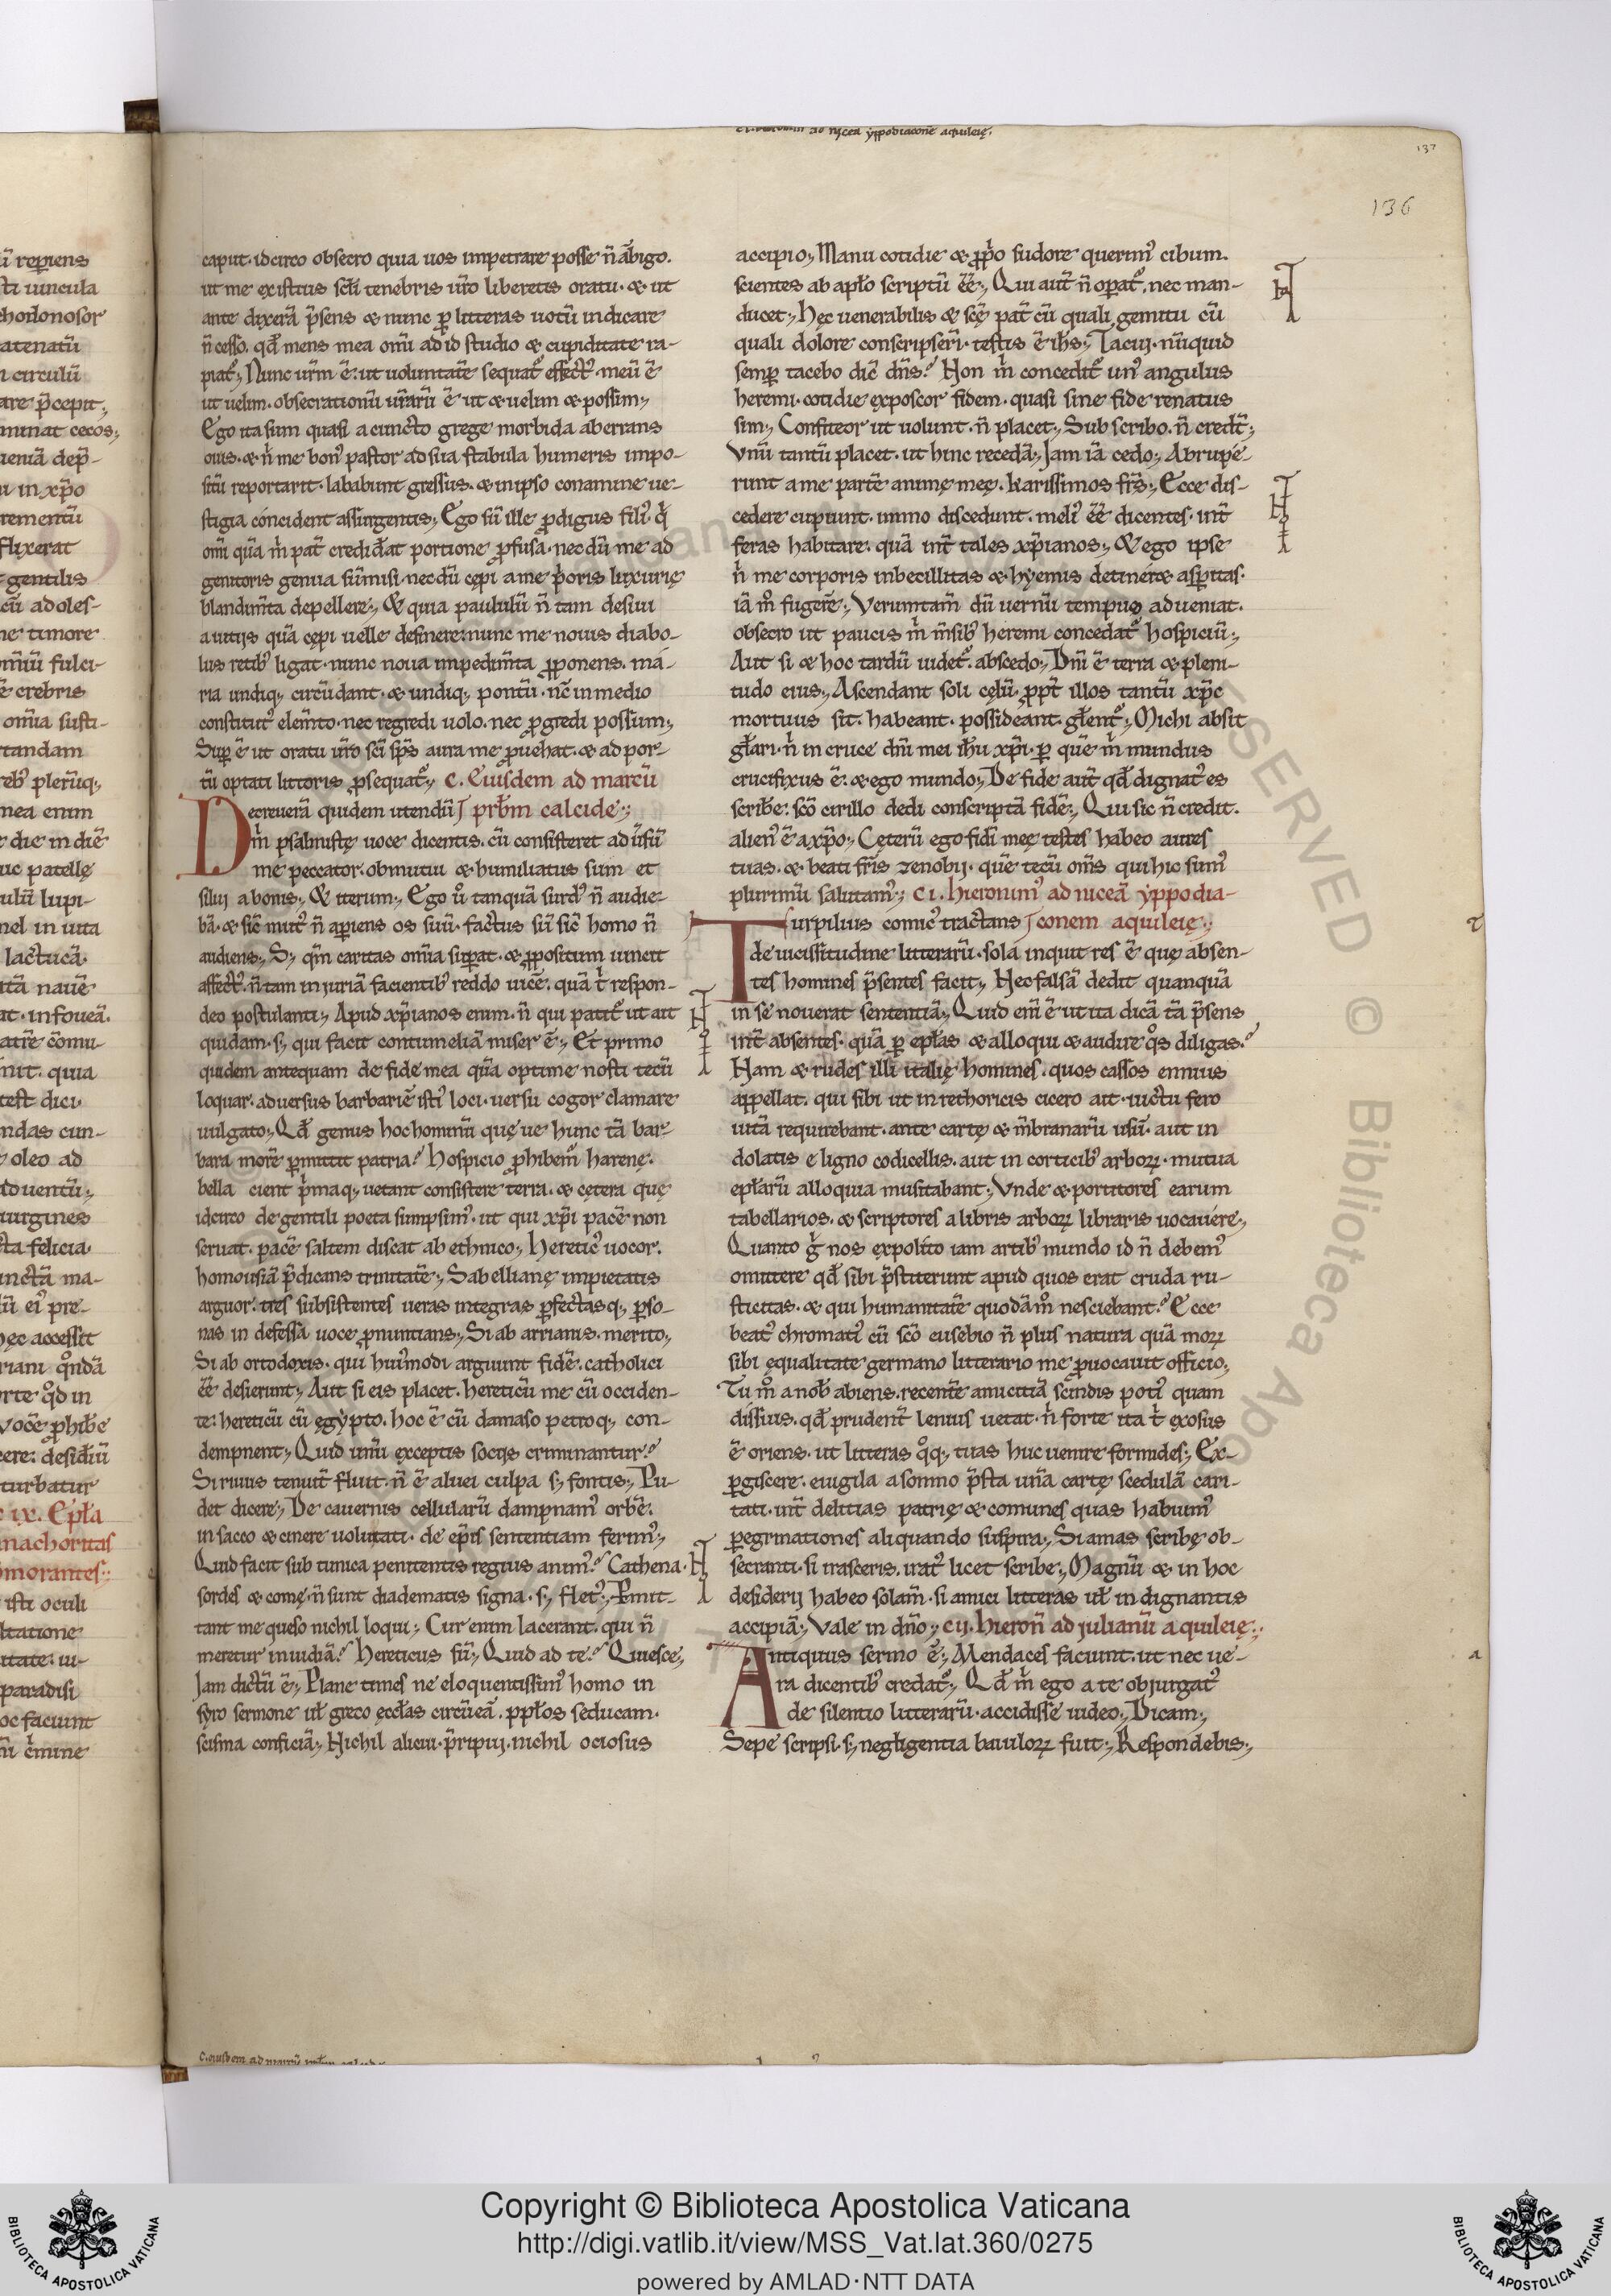 137
136
caput. idcirco obsecro quia uos impetrare posse n̄ ābigo.
ut me ex istius scl̄i tenebris ur̄o liberetis oratu. & ut
ante dixerā p̄sens & nunc ꝑ litteras uotū indicare
n̄ cesso. qd̄ mens mea omī ad id studio & cupiditate ra-
piat᷑; Nunc ur̄m ē. ut uoluntatē sequat᷑ effect᷒. meū ē
ut uelim. obsecrationū ur̄arū ē ut & uelim & possim;
Ego ita sum quasi a cuncto grege morbida aberrans
ouis. & n̄ me bon᷒ pastor ad sua stabula humeris impo-
sitū reportarit. lababunt gressus. & in ipso conamine ue-
stigia concident assurgentis; Ego sū ille ꝓdigus fili᷒. q̄
omī quā m̄ pat̄ crediderat portione ꝓfusa. necdū me ad
genitoris genua sūmisi. necdū cępi a me p̄oris luxurię
blandimt̄a depellere; & quia paululū n̄ tam desiui
a uitijs quā cępi uelle desinere: nunc me nouis diabo-
lus retib᷒ ligat. nunc noua impedimt̄a ꝓponens. ma-
ria undiq; circūdant. & undiq; pontū. nc̄ in medio
constitut᷒ elemt̄o. nec regredi uolo. nec ꝓgredi possum;
Suꝑ ē ut oratu ur̄o sc̄i sp̄s aura me ꝓuehat. & ad por-
tū optati littoris ꝓsequat᷑; c. Eiusdem ad marcū
Decreuerā quidem utendū prb̄m calcide;
m̄ psalmistę uoce dicentis. cū consisteret ad u̅sū
me peccator. obmutui & humiliatus sum et
silui a bonis; & iterum; Ego u̅ tanquā surd᷒ n̄ audie-
bā. & sic̄ mut᷒ n̄ aꝑiens os suū. factus sū sic̄ homo n̄
audiens; S; qm̄ caritas omīa suꝑat. & ꝓpositum uincit
affect᷒. n̄ tam iniuriā facientib᷒ reddo uicē. quā t̄ respon-
deo postulanti; Apud xp̄ianos enim. n̄ qui patit᷑ ut ait
quidam. s; qui facit contumeliā miser ē; Et primo
quidem antequam de fide mea qūa optime nosti tecū
loquar. aduersus barbariē isti᷒ loci. uersu cogor clamare
uulgato; Qd̄ genus hoc hominū quę ue hunc tā bar-
bara morē ꝑmittit patria? Hospicio ꝓhibem᷑ harenę.
bella cient p̄maq; uetant consistere terra. & cętera quę
idcirco de gentili poeta sumpsim᷒. ut qui xp̄i pacē non
seruat. pacē saltem discat ab ethnico; Heretic᷒ uocor.
homousiā p̄dicans trinitatē; Sabellianę impietatis
arguor. tres subsistentes ueras integras ꝑfectasq; ꝑso-
nas indefessa uoce ꝓnuntians; Si ab arrianis. merito;
Si ab ortodoxis. qui hui᷒modi arguunt fidē. catholici
ēē desierunt; Aut si eis placet. hereticū me cū occiden-
te: hereticū cū ęgypto. hoc ē cū damaso petroq; con-
dempnent; Quid unū exceptis socijs criminantur?
Si riuus tenuit᷑ fluit. n̄ ē aluei culpa s; fontis; Pu-
det dicere; De cauernis cellularū dampnam᷒ orbē.
in sacco & cinere uolutati. de ep̄is sententiam ferim᷒;
Quid facit sub tunica penitentis regius anim᷒? Cathena.
sordes & comę. n̄ sunt diadematis signa. s; flet᷒; Pmit-
tant me queso nichil loqui; Cur enim lacerant. qui n̄
meretur inuidiā? Hereticus sū; Quid ad te? Quiesce;
Jam dictū ē; Plane times ne eloquentissim᷒ homo in
syro sermone ul̄ greco ęccl̄as circūeā. ppl̄os seducam.
scisma conficiā; Nichil alicui. p̄ripui. nichil ociosus
accipio; Manu cotidie & ꝓp̄o sudore querim᷒ cibum.
scientes ab apl̄o scriptū ēē; Qui aut̄ n̄ opat᷑. nec man-
ducet; Hęc uenerabilis & scē pat̄ cū quali gemitu cū
quali dolore conscripseri. testis ē ih̄s; Tacui. nūquid
semꝑ tacebo dic̄ dn̄s? Non m̄ concedit᷑ un᷒ angulus
heremi. cotidie exposcor fidem. quasi sine fide renatus
sim; Confiteor ut uolunt. n̄ placet; Sub scribo. n̄ credt̄;
Vnū tantū placet. ut hinc recedā; Jam iā cedo; Abrupe-
runt a me partē animę meę. karissimos fr̄s; Ecce dis-
cedere cupiunt. immo discedunt. meli᷒ ēē dicentes. int̄
feras habitare. quā int̄ tales xp̄ianos; & ego ipse
n̄ me corporis inbecillitas & hyemis detineret asꝑitas.
iā m̊ fugerē; Verumtam̄ dū uernū tempus adueniat.
obsecro ut paucis m̄ m̄sib᷒ heremi concedat᷑ hospiciū;
Aut si & hoc tardū uidet᷑. abscedo; Dn̄i ē terra & pleni-
tudo eius; Ascendant soli cęlū. ꝓpt̄ illos tantū xp̄c
mortuus sit. habeant. possideant. gl̄ent᷑; Michi absit
gl̄ari. n̄ in cruce dn̄i mei ih̄u xp̄i. ꝑ quē m̄ mundus
crucifixus ē. & ego mundo; De fide aut̄ qd̄ dignat᷒ es
scribe: sc̄o cirillo dedi conscriptā fidē; Qui sic n̄ credit.
alien᷒ ē a xp̄o; Cęterū ego fidi meę testes habeo aures
tuas. & beati fr̄is zenobij. quē tecū om̄s qui hic sum᷒
plurimū salutam᷒; ci. hieronim᷒ ad niceā yppodia-
Turpilius comic᷒ tractans conem aquileię;
de uicissitudine litterarū. sola inquit res ē quę absen-
tes homines p̄sentes facit; Nec falsā dedit quanquā
in se nouerat sententiā; Quid em̄ ē ut ita dicā tā p̄sens
int̄ absentes. quā ꝑ epl̄as & alloqui & audire q̊s diligas?
Nam & rudes illi italię homines. quos cassos ennius
appellat. qui sibi ut in rethoricis cicero ait. uictu fero
uitā requirebant. ante cartę & m̄branarū usū. aut in
dolatis e ligno codicellis. aut in corticib᷒ arboꝝ. mutua
epl̄arū alloquia missitabant; Vnde & portitores earum
tabellarios. & scriptores a libris arboꝝ librarios uocauere;
Quanto ḡ nos expolito iam artib᷒ mundo id n̄ debem᷒
omittere qd̄ sibi p̄stiterunt apud quos erat cruda ru-
sticitas. & qui humanitatē quodām̊ nesciebant? Ecce
beat᷒ chromati᷒ cū sc̄o eusebio n̄ plus natura quā moꝝ
sibi ęqualitate germano litterario me ꝓuocauit officio;
Tu m̊ a nob᷒ abiens. recentē amicitiā scindis poti᷒ quam
dissuis. qd̄ prudent̄ lenius uetat. n̄ forte ita t̄ exosus
ē oriens. ut litteras q̊q; tuas huc uenire formides; Ex-
ꝑgiscere. euigila a somno p̄sta unā cartę scedulā cari-
tati. int̄ delitias patrię & comunes quas habuim᷒
ꝑegrinationes aliquando suspira; Si amas scribe ob-
secranti. si irasceris. irat᷒ licet scribe; Magnū & in hoc
desiderij habeo solam̄. si amici litteras ul̄ indignantis
accipiā; Vale in dn̄o; cij. hieron̄ ad julianū aquileię;
Antiquus sermo ē; Mendaces faciunt. ut nec ue-
ra dicentib᷒ credat᷑; Qd̄ m̄ ego a te objurgat᷒
de silentio litterarū. accidisse uideo; Dicam;
Sepe scripsi. s; negligentia baiuloꝝ fuit; Respondebis;
Copyright © Biblioteca Apostolica Vaticana
http://digi.vatlib.it/view/MSS_Vat.lat.360/0275
powered by AMLAD·NTT DATA
BIBLIOTECA APOSTOLICA VATICANA
BIBLIOTECA APOSTOLICA VATICANA